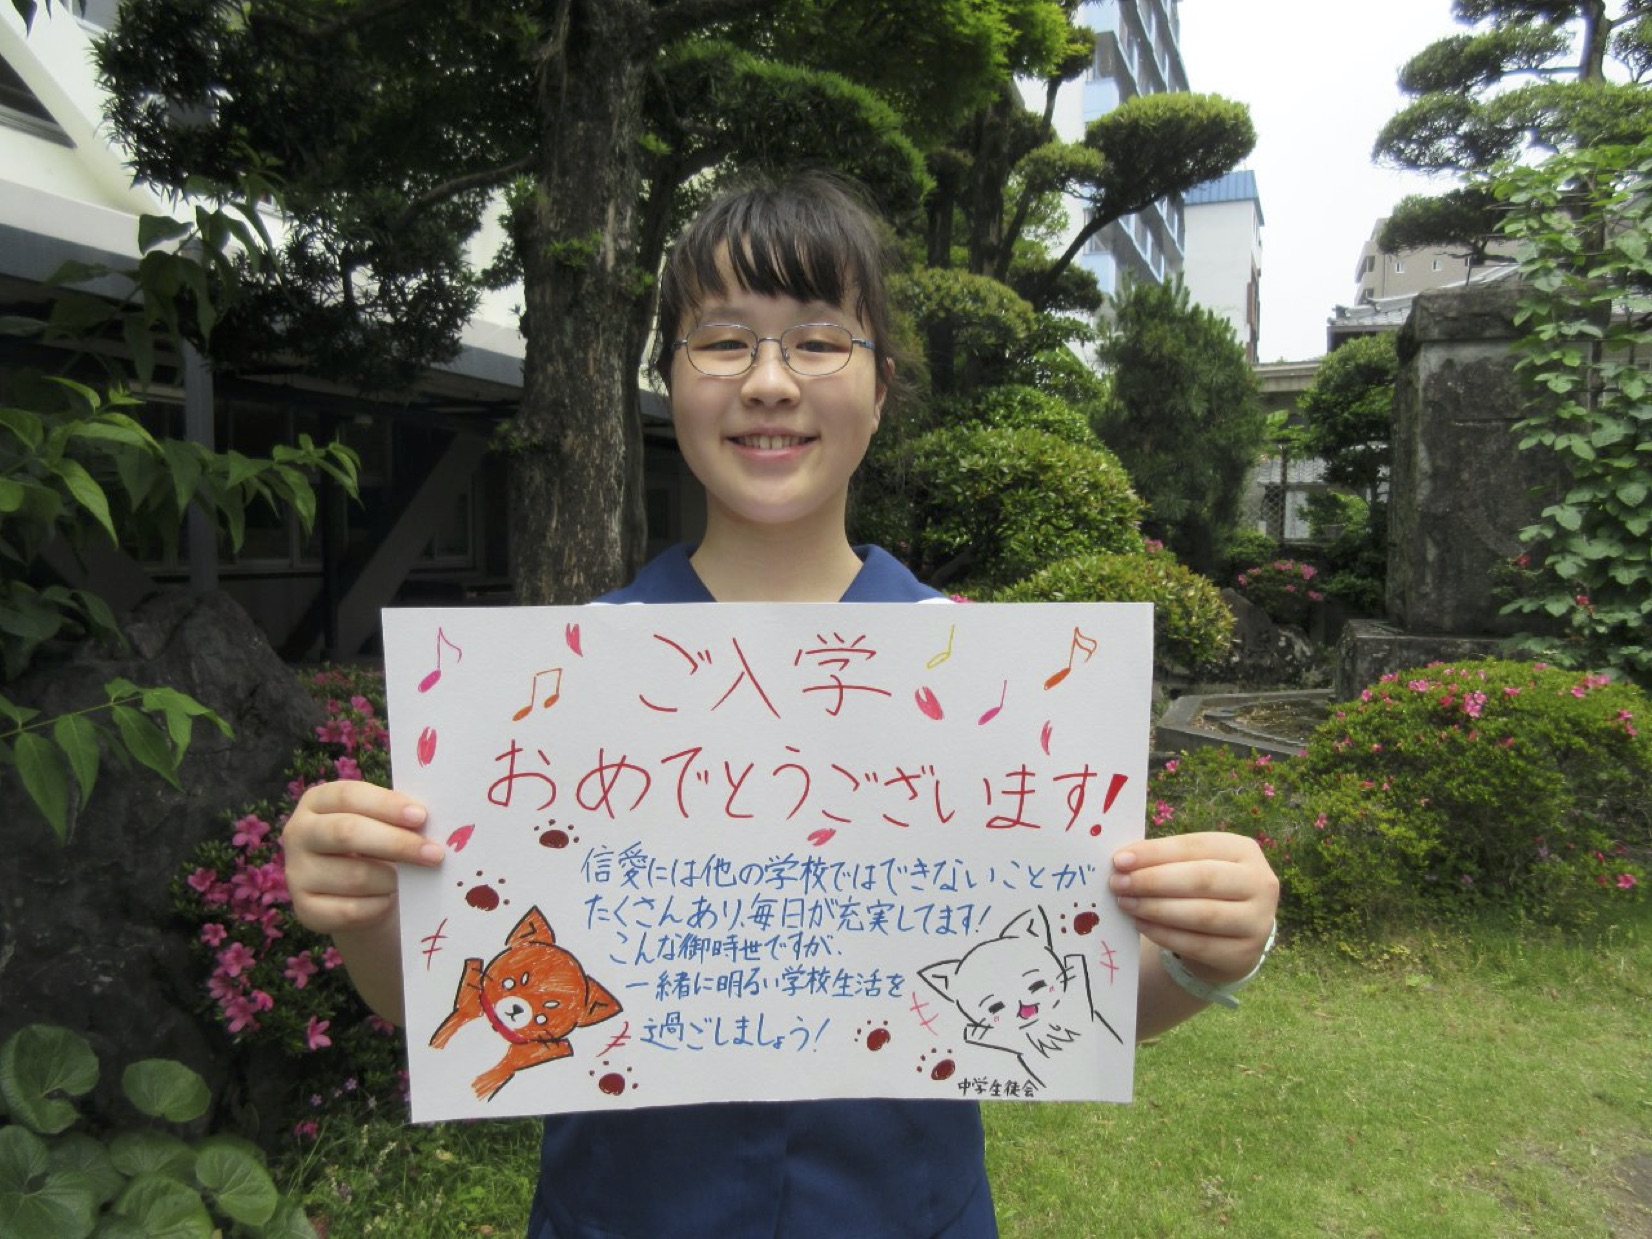 ご入学
おめでとうございます!
信愛には他の学校ではできないことが
たくさんあり、毎日が充実してます!
こんな御時世ですが、
一緒に明るい学校生活を
過ごしましょう!
中学生徒会